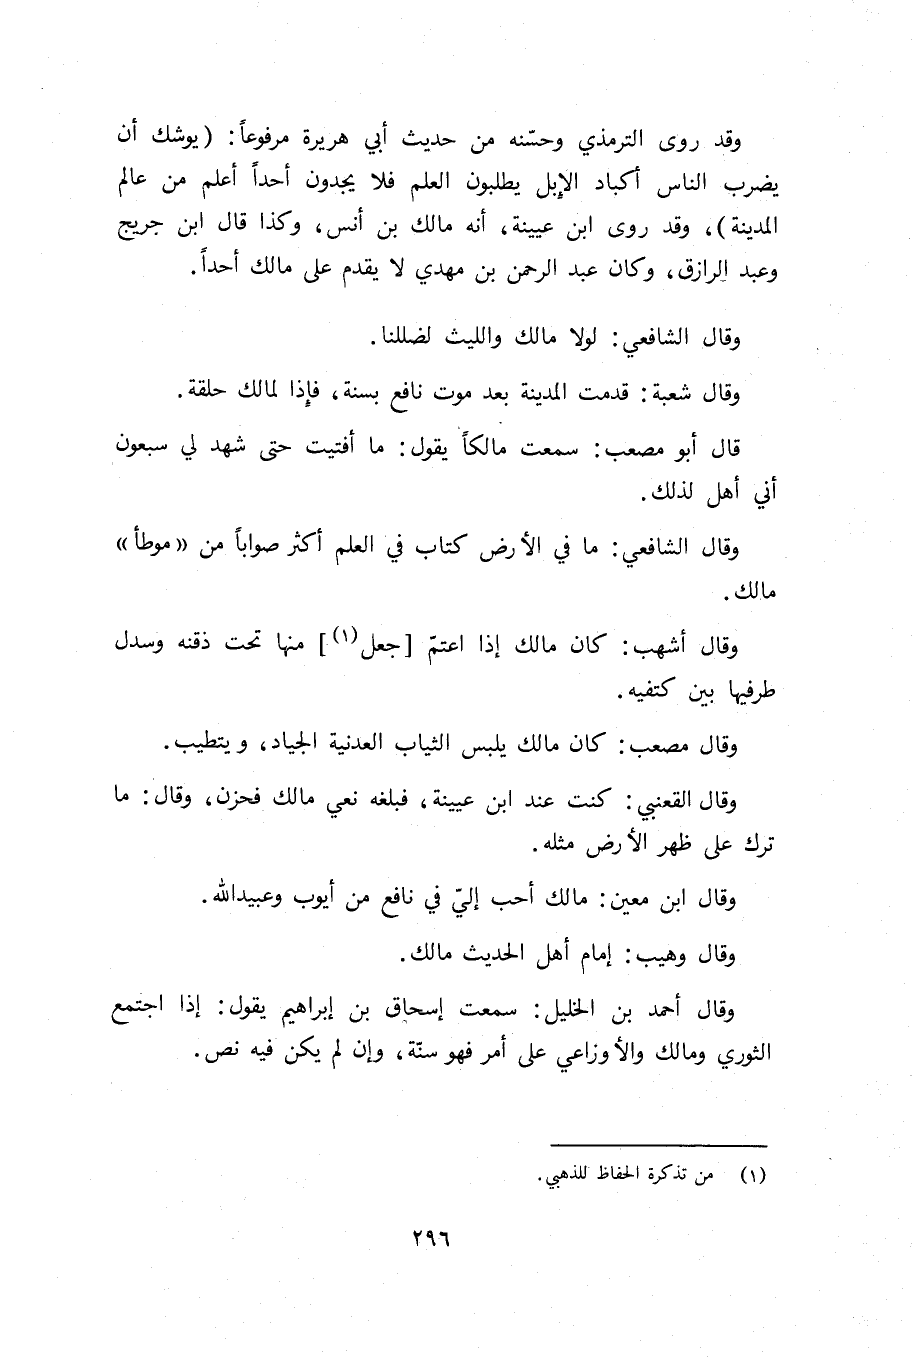 وقد روى الترمذي وحسّنه من حديث أبي هريرة مرفوعاً: (يوشك أن
يضرب الناس أكباد الإبل يطلبون العلم فلا يجدون أحداً أعلم من عالم
المدينة)، وقد روى ابن عيينة، أنه مالك بن أنس، وكذا قال ابن جريج
وعبد الرازق، وكان عبد الرحمن بن مهدي لا يقدم على مالك أحداً.
وقال الشافعي: لولا مالك والليث لضللنا.
وقال شعبة: قدمت المدينة بعد موت نافع بسنة، فإذا لمالك حلقة.
قال أبو مصعب: سمعت مالكاً يقول: ما أفتيت حتى شهد لي سبعون
أني أهل لذلك.
وقال الشافعي: ما في الأرض كتاب في العلم أكثر صواباً من «موطأ»
مالك.
وقال أشهب: كان مالك إذا اعتمّ [جعل(١)] منها تحت ذقنه وسدل
طرفيها بين كتفيه.
وقال مصعب: كان مالك يلبس الثياب العدنية الجياد، ويتطيب.
وقال القعنبي: كنت عند ابن عيينة، فبلغه نعي مالك فحزن، وقال: ما
ترك على ظهر الأرض مثله.
وقال ابن معين: مالك أحب إليّ في نافع من أيوب وعبيدالله.
وقال وهيب: إمام أهل الحديث مالك.
وقال أحمد بن الخليل: سمعت إسحاق بن إبراهيم يقول: إذا اجتمع
الثوري ومالك والأوزاعي على أمر فهو سنّة، وإن لم يكن فيه نص.
(١) من تذكرة الحفاظ للذهبي.
٢٩٦